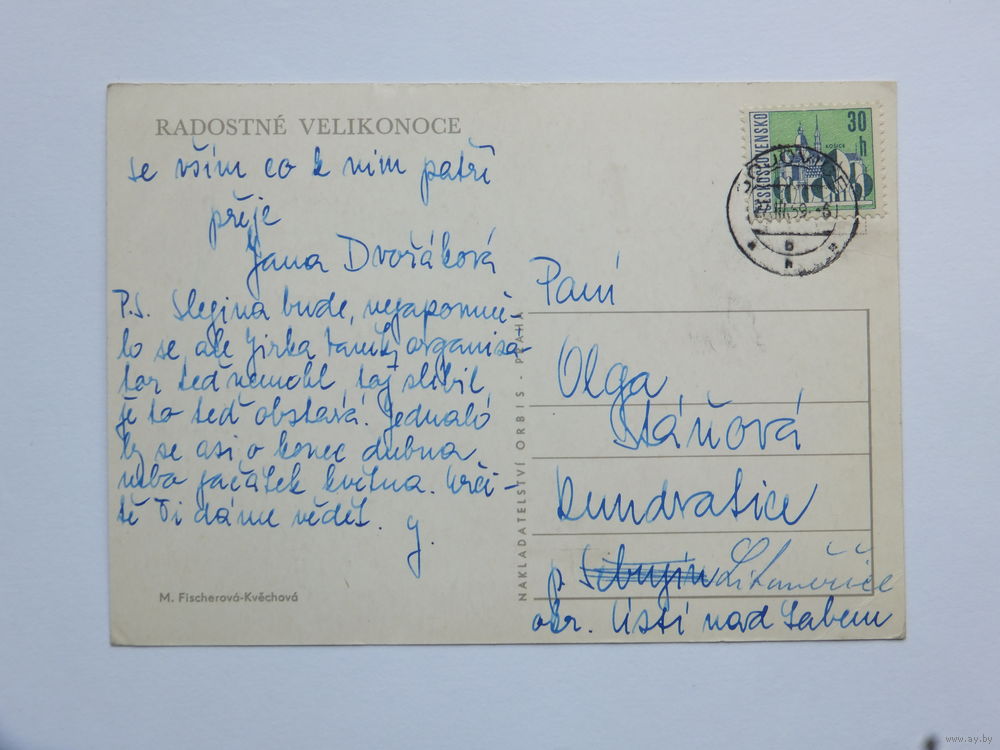 RADOSTNÉ VELIKONOCE
se vším co k nim patří
přeje
Jana Dvořáková
P.S. Slezina bude, nezapomně-
lo se, ale Jirka organisá-
tor teď nemohl, slíbil
že to teď obstará. Jednalo
by se asi o konec dubna
nebo začátek května. Urči-
tě Ti dáme vědět. J.
M. Fischerová-Kvěchová
NAKLADATELSTVÍ ORBIS · PRAHA
ČESKOSLOVENSKO
30 h
KOŠICE
Paní
Olga
Stáňová
Kundratice
p. Sebuzín Litoměřice
okr. Ústí nad Labem
www.ay.by